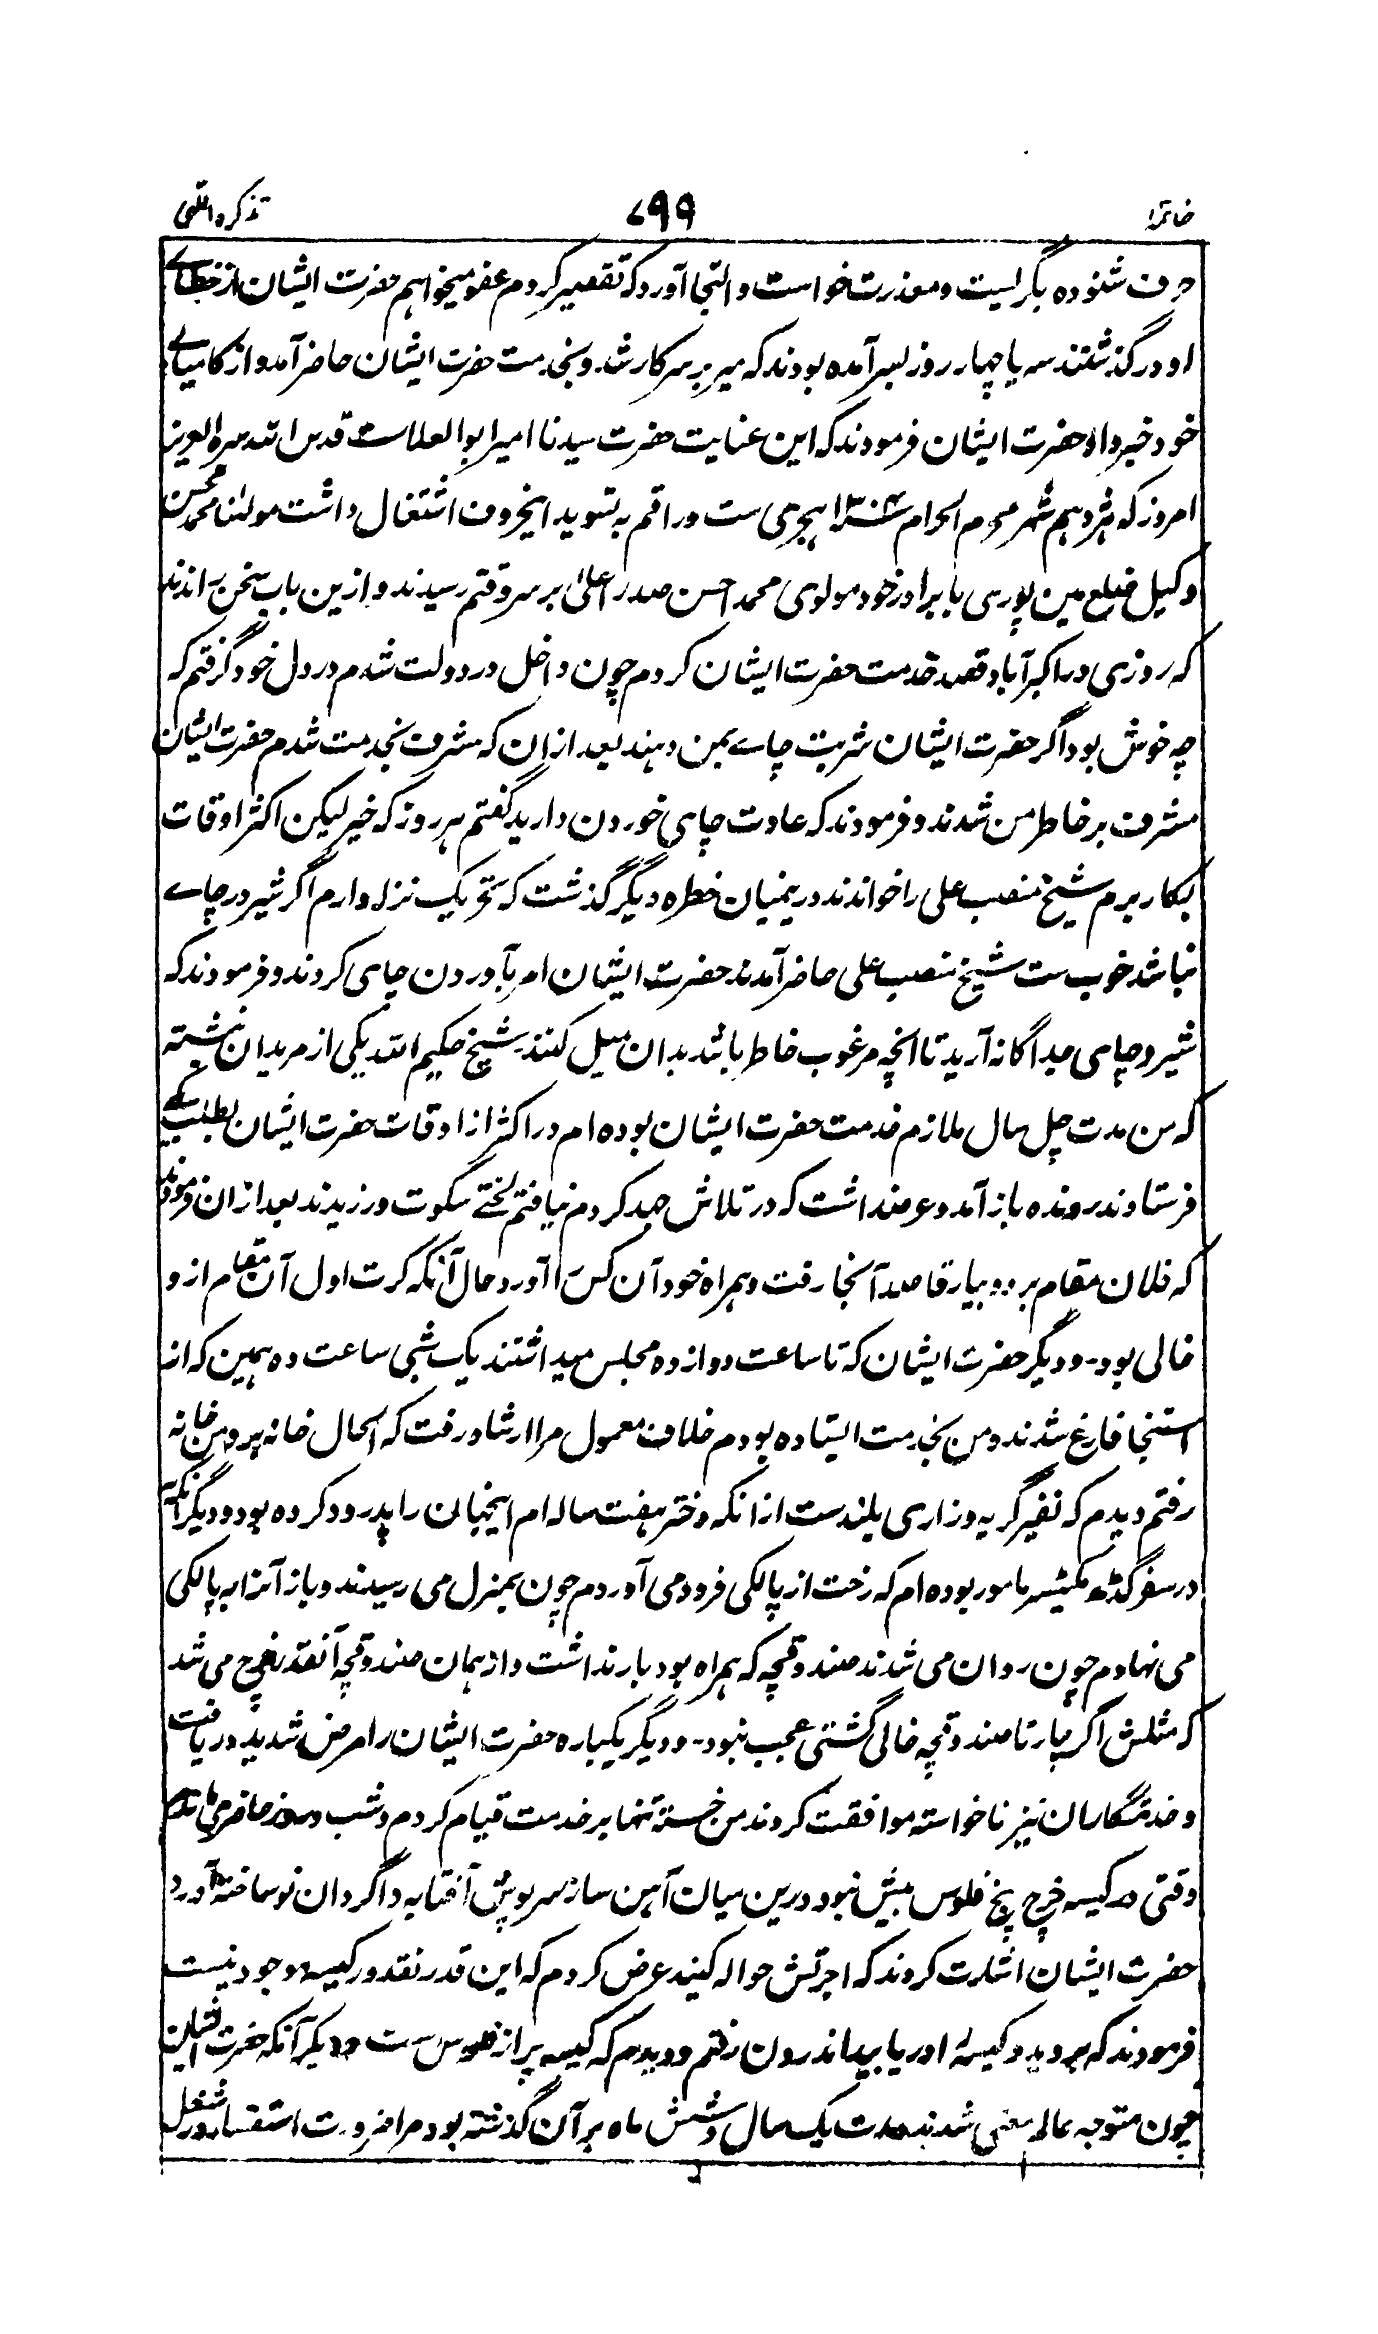 خاتمہ ۷۹۹ تذکرہ اللّٰہی
حرف شنوده بگریست و معذرت خواست و التجا آورد که تقصیر کردم عفو میخواهم حضرت ایشان از خطاے
او درگذشتند سه یا چهار روز بسر آمده بودند که میر بر سر کار شد و بخدمت حضرت ایشان حاضر آمد و از کامیابے
خود خبر داد حضرت ایشان فرمودند که این عنایت حضرت سیدنا امیر ابوالعلاست قدس الله سره العزیز
امروز که هژدهم شهر محرم الحرام سنه ۱۳۰۴ هجری ست و راقم به تسوید اینحروف اشتغال داشت مولٰنا محمد محسن
وکیل ضلع مین پوری با برادر خود مولوی محمد احسن صدر اعلیٰ بر سر وقتم رسیدند و ازین باب سخن راندند
که روزی در اکبرآباد قصد خدمت حضرت ایشان کردم چون داخل در دولت شدم در دل خود گرفتم که
چه خوش بود اگر حضرت ایشان شربت چاے بمن دهند بعد ازان که مشرف بخدمت شدم حضرت ایشان
مشرف بر خاطر من شدند و فرمودند که عادت چای خوردن دارید گفتم هر روز که خیر لیکن اکثر اوقات
بکار برم شیخ منصب علی را خواندند درینمیان خطره دیگر گذشت که تحریک نزله دارم اگر شیر در چاے
نباشد خوب ست شیخ منصب علی حاضر آمدند حضرت ایشان امر بآوردن چای کردند و فرمودند که
شیر و چای جداگانه آرید تا انچه مرغوب خاطر باشد بدان میل کنند۔ شیخ حکیم الله یکی از مریدان نبشته
که من مدت چل سال ملازم خدمت حضرت ایشان بوده ام در اکثر از اوقات حضرت ایشان بطلب کسے
فرستادند رونده باز آمد و عرضداشت که در تلاش جهد کردم نیافتم لختے سکوت ورزیدند بعد ازان فرمودند
که فلان مقام برو و بیار قاصد آنجا رفت و همراه خود آن کس را آورد حال آنکه کرت اول آن مقام ازو
خالی بود۔ و دیگر حضرت ایشان که تا ساعت دوازده مجلس میداشتند یک شبی ساعت ده همین که از
استنجا فارغ شدند و من بخدمت ایستاده بودم خلاف معمول مرا ارشاد رفت که الحال خانه برو من خانه
رفتم دیدم که نفیر گریه و زاری بلندست از انکه دختر هفت ساله ام اینجهان را پدرود کرده بود و دیگر آنکه
در سفر گڈھ مکٹیسر مامور بوده ام که رخت از پالکی فرود می آوردم چون بمنزل می رسیدند و باز آنرا به پالکی
می نهادم چون روان می شدند صندوقچه که همراه بود بار نداشت و از همان صندوقچه آنقدر بخرچ می شد
که مثلش اگر چار تا صندوقچه خالی گشتی عجب نبود۔ و دیگر یکباره حضرت ایشان را مرض شدید دریافت
و خدمتگاران نیز ناخواسته موافقت کردند من خسته تنها بر خدمت قیام کردم و شب و روز حاضر می ماندم
وقتی در کیسه خرچ پنج فلوس بیش نبود درین میان آهن ساز سرپوش آفتابه و اگردان نو ساخته آورد
حضرت ایشان اشارت کردند که اجرتش حواله کنید عرض کردم که این قدر نقد در کیسه موجود نیست
فرمودند که بروید و کیسهٔ او دریابید اندرون رفتم و دیدم که کیسه پر از فلوس ست و دیگر آنکه حضرت ایشان
چون متوجه عالم معنی شدند مدت یک سال و شش ماه بر آن گذشته بود مرا ضرورت استفسار در شغل